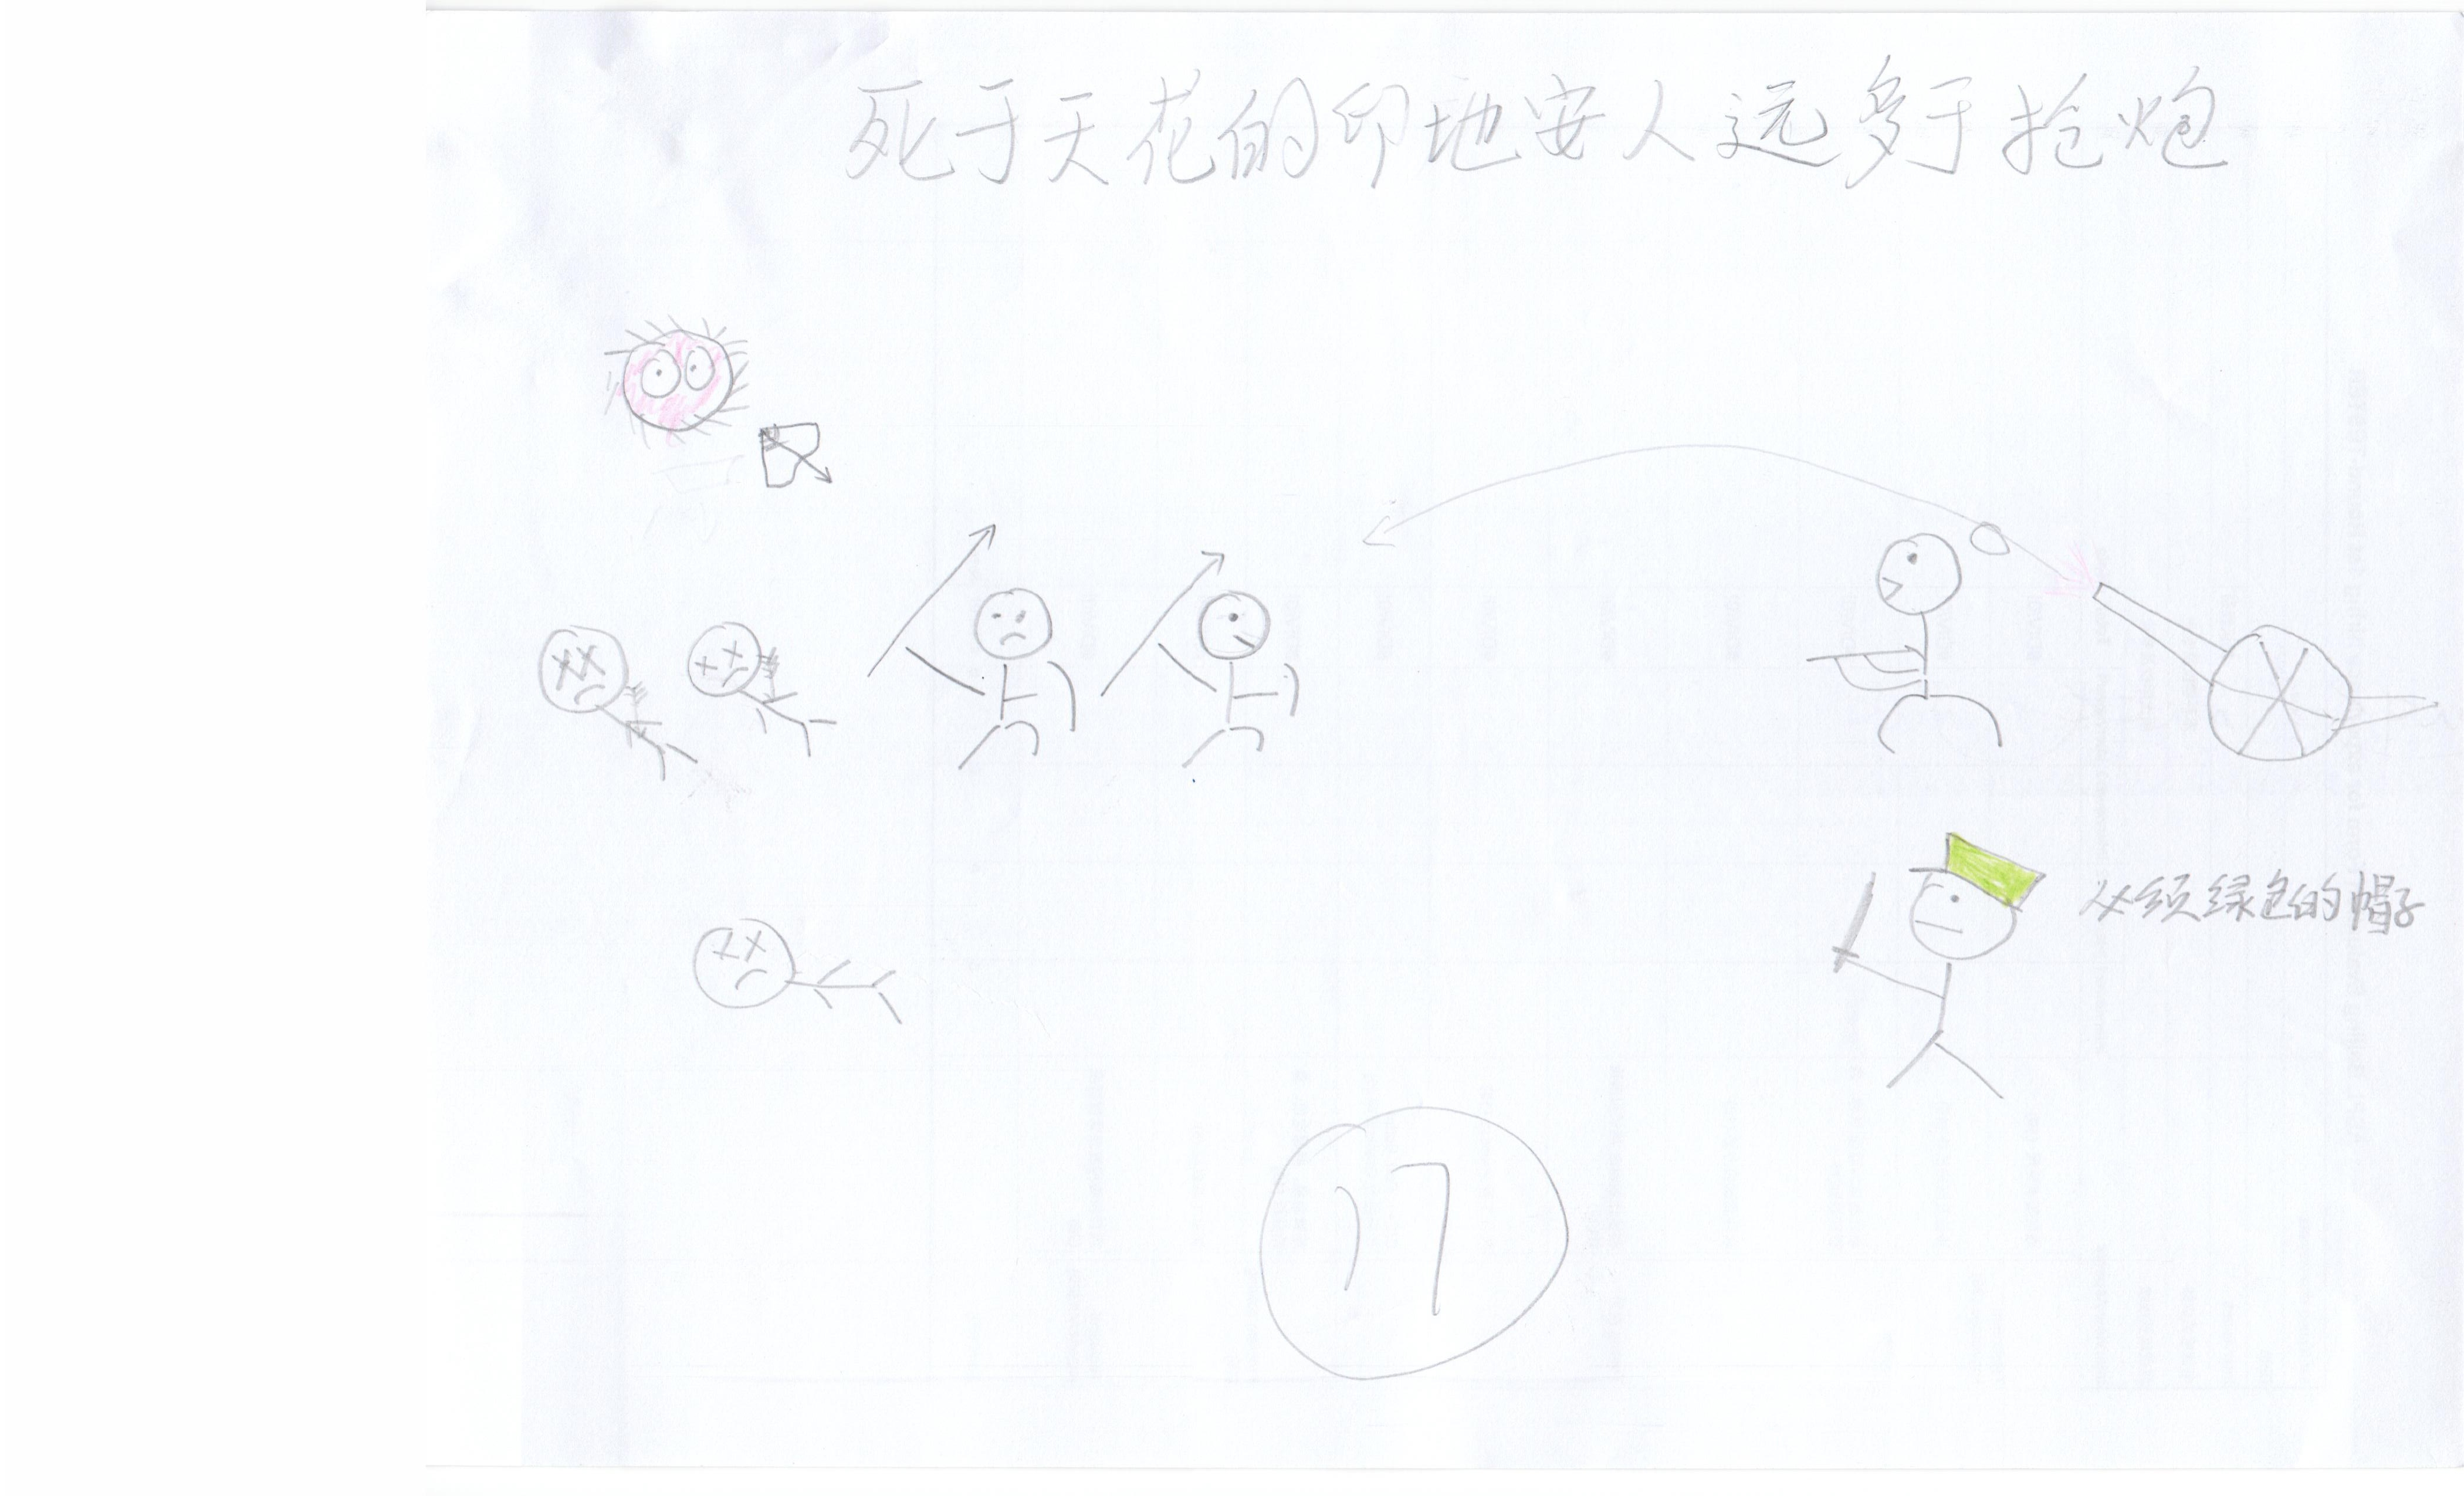 死于天花的印地安人远多于抢炮
必须绿色的帽子
17